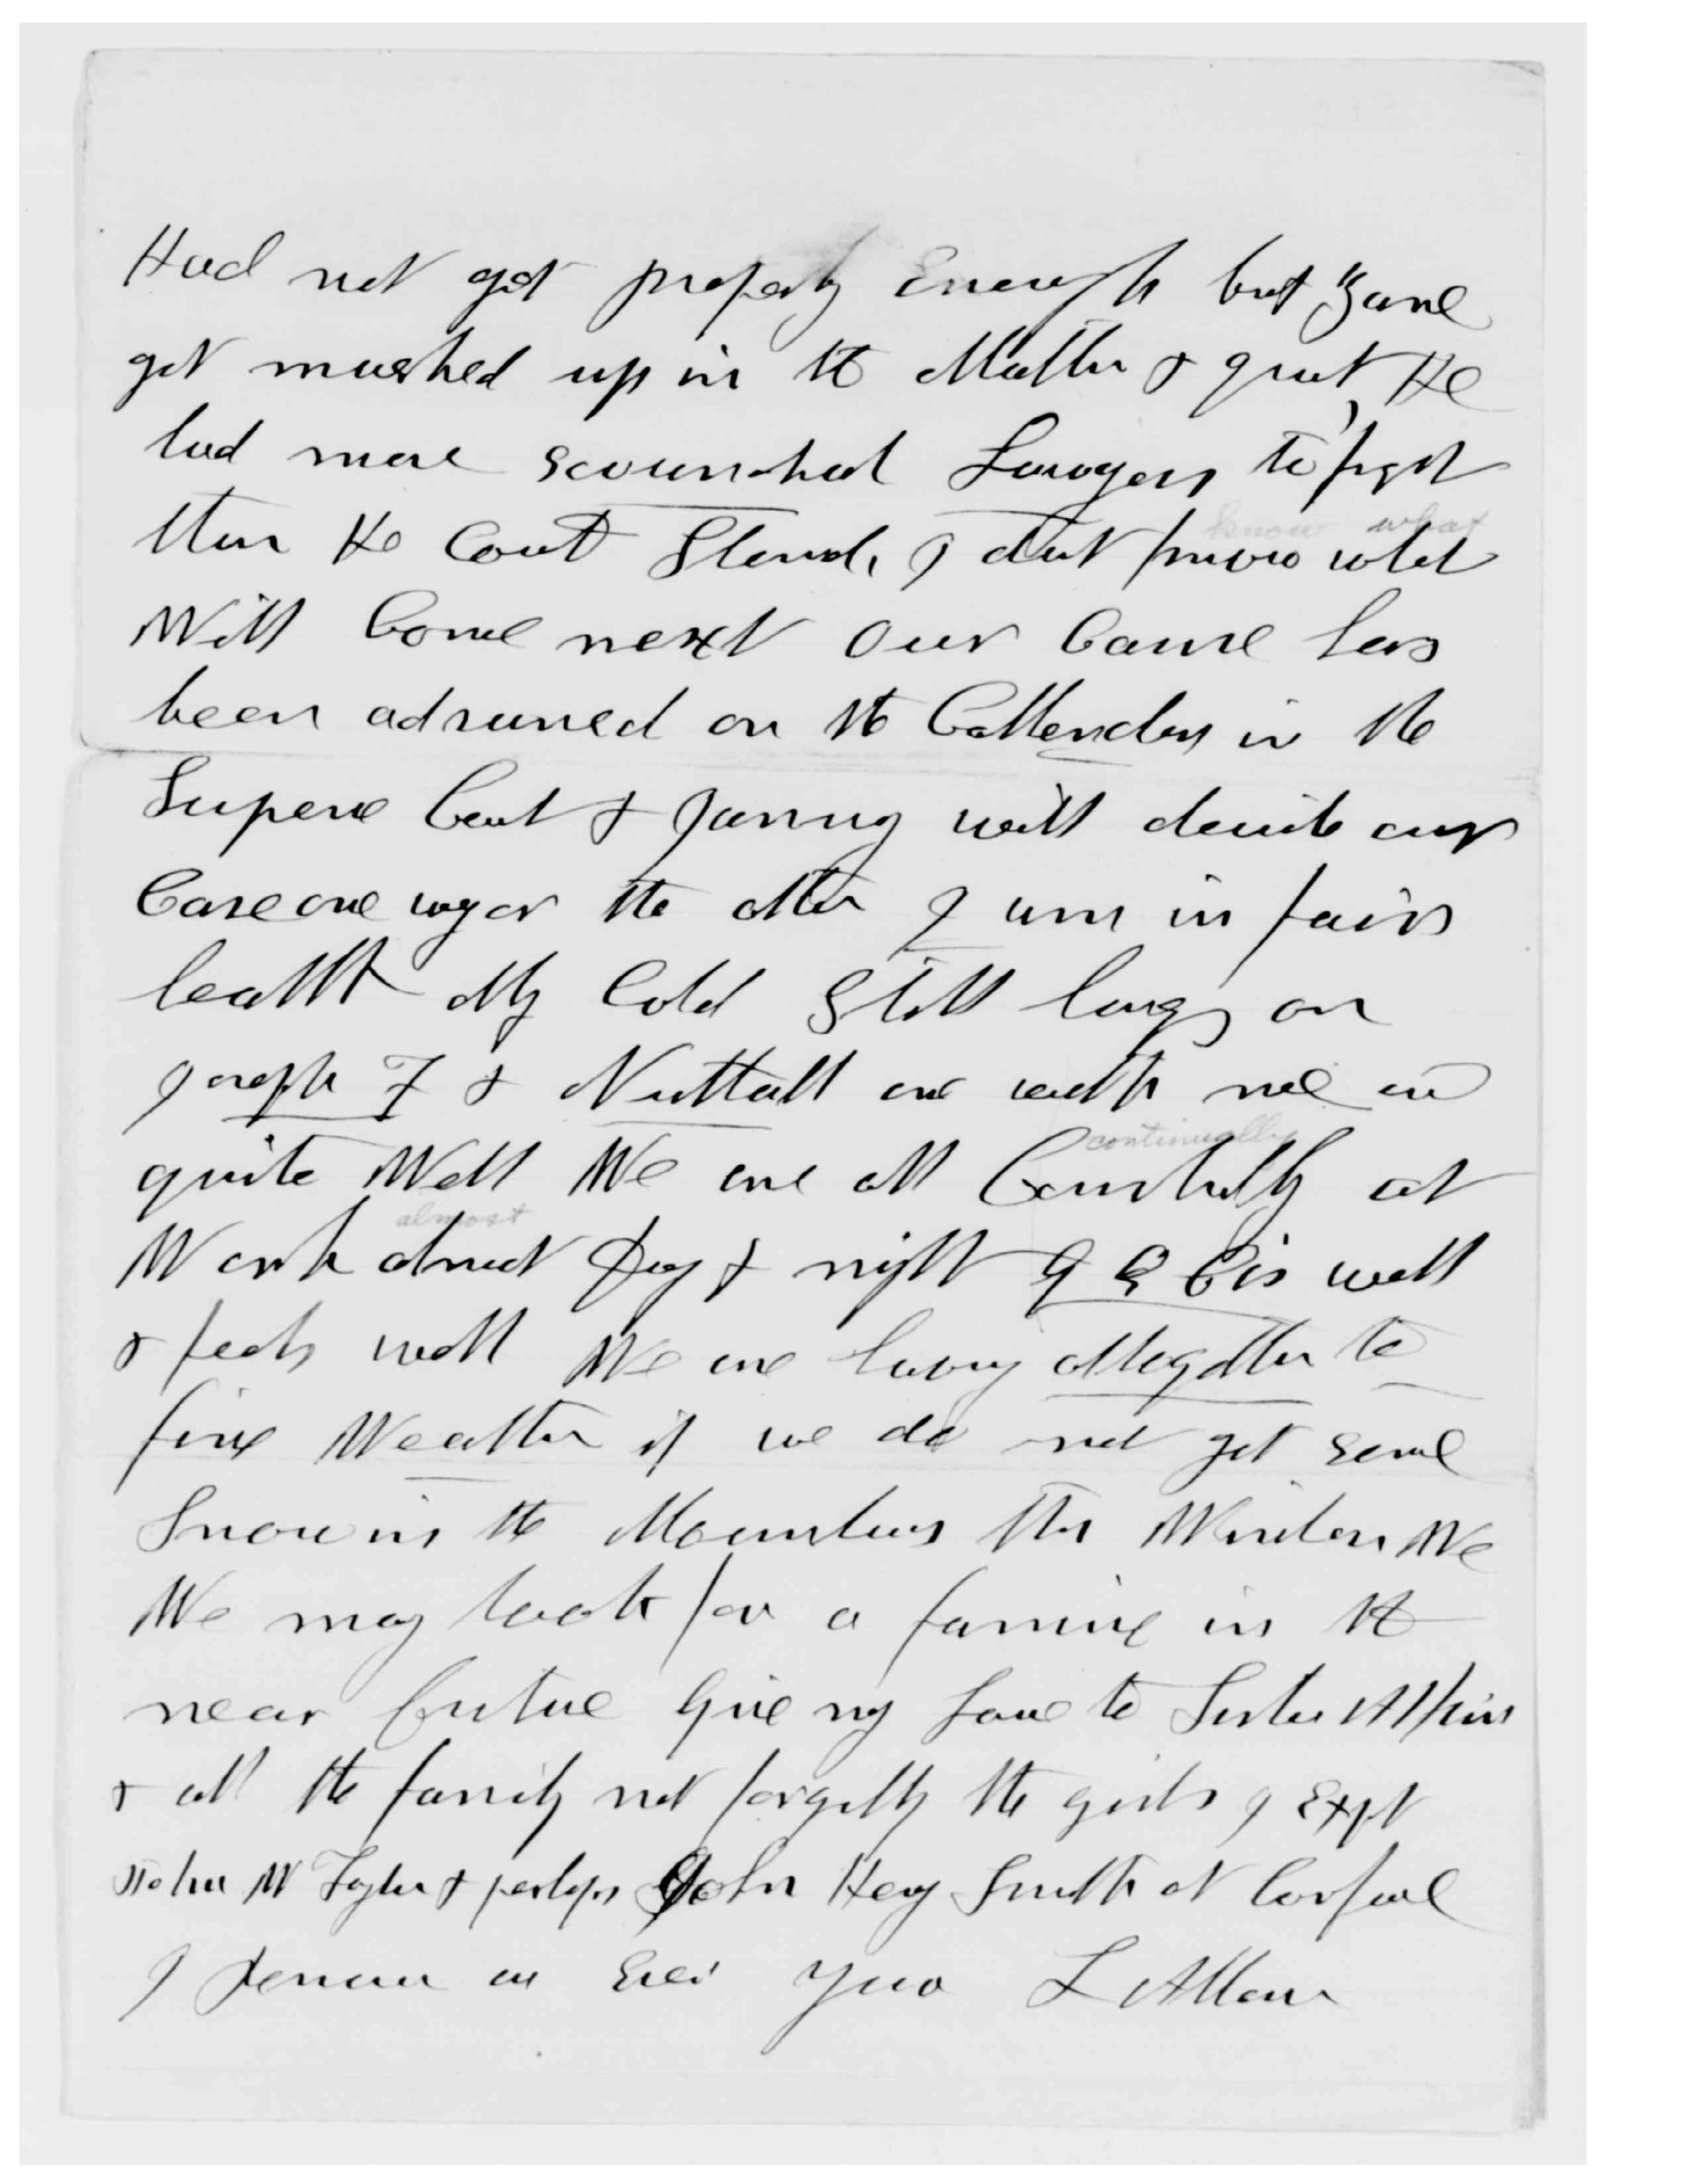 Had not got property Enough but Zane
got mushed up in the Matter & quit He
had more scoundrel Lawyers to fight
then the Court Stand, I dont know what
know what
Will Come next Our Cause has
been advanced on the Callender in the
Supreme Court & January will decide our
Case one way or the other I am in fair
health My Cold Still hangs on
Joseph F & Nuttall are with me are
quite Well We are all Constantly at
continually
Work almost Day & night G Q C is well
almost
& feels well We are having altogether to
fine Weather if we do not get some
Snow in the Mountains this Winter We
We may look for a famine in the
near future Give my Love to Sister Atkin
& all the family not forgetting the girls I Expt
John W Taylor & perhaps John Henry Smith at Conference
I Remain as Ever Yours L Allan